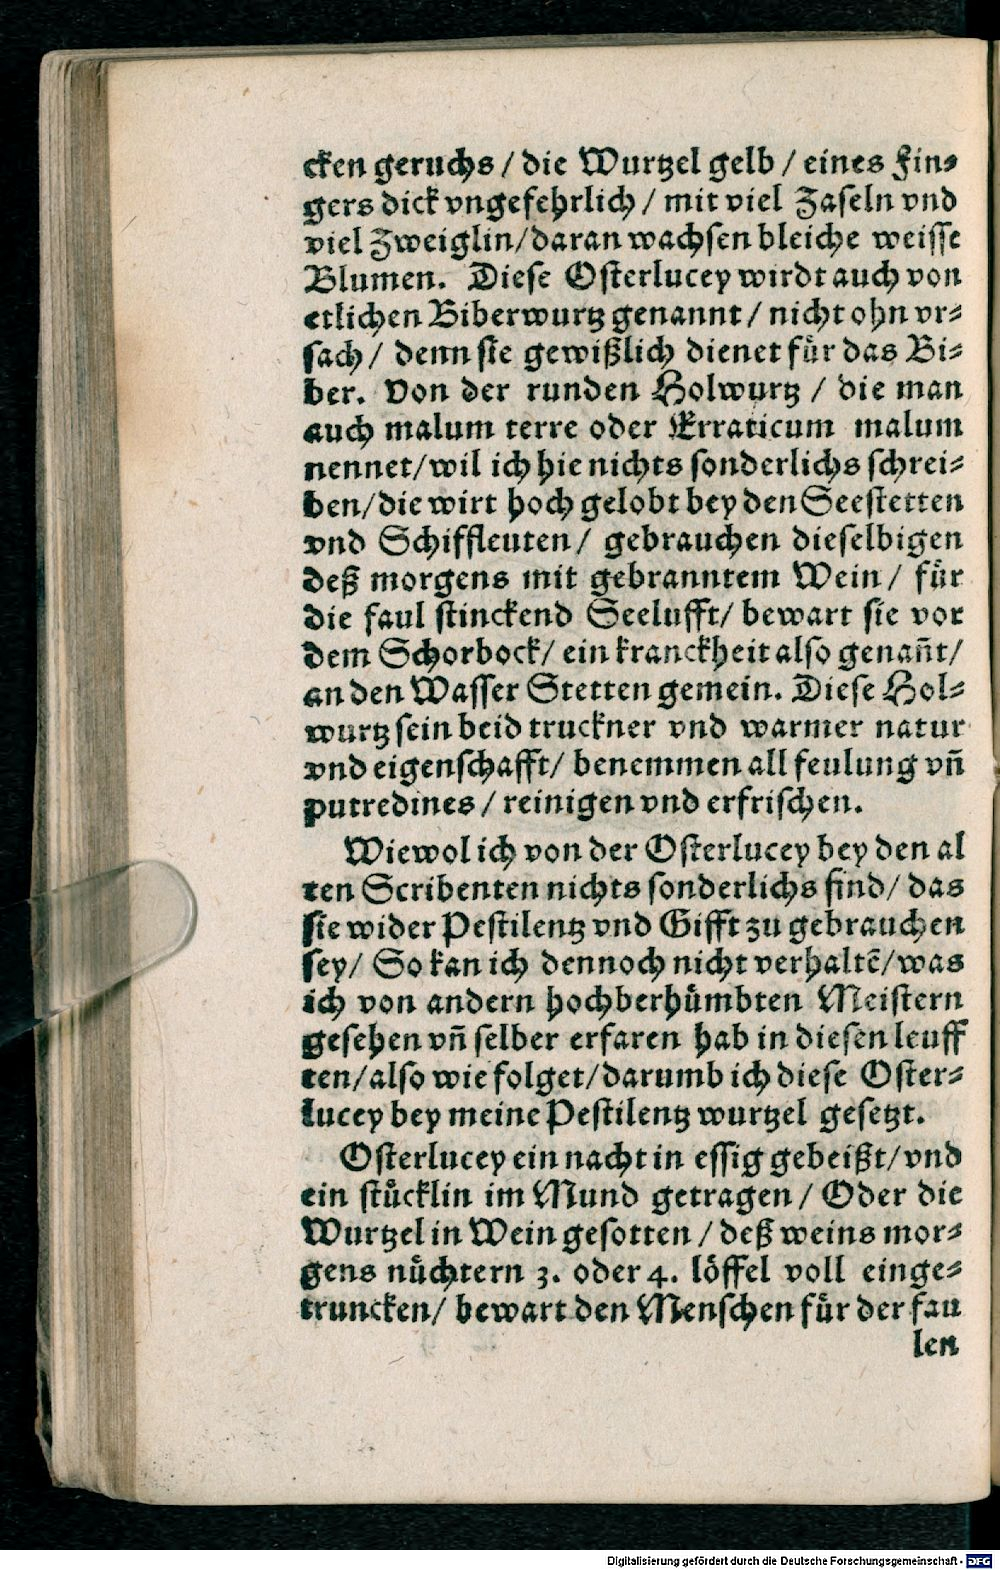 cken geruchs / die Wurtzel gelb / eines Fin⸗
gers dick vngefehrlich / mit viel Zaseln vnd
viel Zweiglin/daran wachsen bleiche weisse
Blumen. Diese Osterlucey wirdt auch von
etlichen Biberwurtz genannt / nicht ohn vr⸗
sach / denn sie gewißlich dienet für das Bi⸗
ber. Von der runden Holwurtz / die man
auch malum terre oder Erraticum malum
nennet/wil ich hie nichts sonderlichs schrei⸗
ben/die wirt hoch gelobt bey den Seestetten
vnd Schiffleuten / gebrauchen dieselbigen
deß morgens mit gebranntem Wein / für
die faul stinckend Seelufft/ bewart sie vor
dem Schorbock/ ein kranckheit also genañt/
an den Wasser Stetten gemein. Diese Hol⸗
wurtz sein beid truckner vnd warmer natur
vnd eigenschafft/ benemmen all feulung vñ
putredines / reinigen vnd erfrischen.
Wiewol ich von der Osterlucey bey den al
ten Scribenten nichts sonderlichs find/ das
sie wider Pestilentz vnd Gifft zu gebrauchen
sey/ So kan ich dennoch nicht verhaltẽ/was
ich von andern hochberhümbten Meistern
gesehen vñ selber erfaren hab in diesen leuff
ten/also wie folget/darumb ich diese Oster⸗
lucey bey meine Pestilentz wurtzel gesetzt.
Osterlucey ein nacht in essig gebeißt/vnd
ein stücklin im Mund getragen / Oder die
Wurtzel in Wein gesotten / deß weins mor⸗
gens nüchtern 3. oder 4. löffel voll einge⸗
truncken/ bewart den Menschen für der fau
len
Digitalisierung gefördert durch die Deutsche Forschungsgemeinschaft - DFG